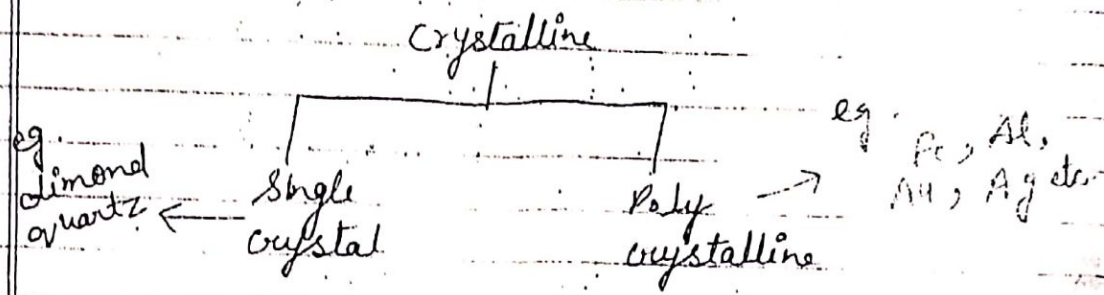 Crystalline
eg.
dimond
quartz
Single
crystal
Poly
crystalline
eg.
Fe, Al,
Au, Ag etc